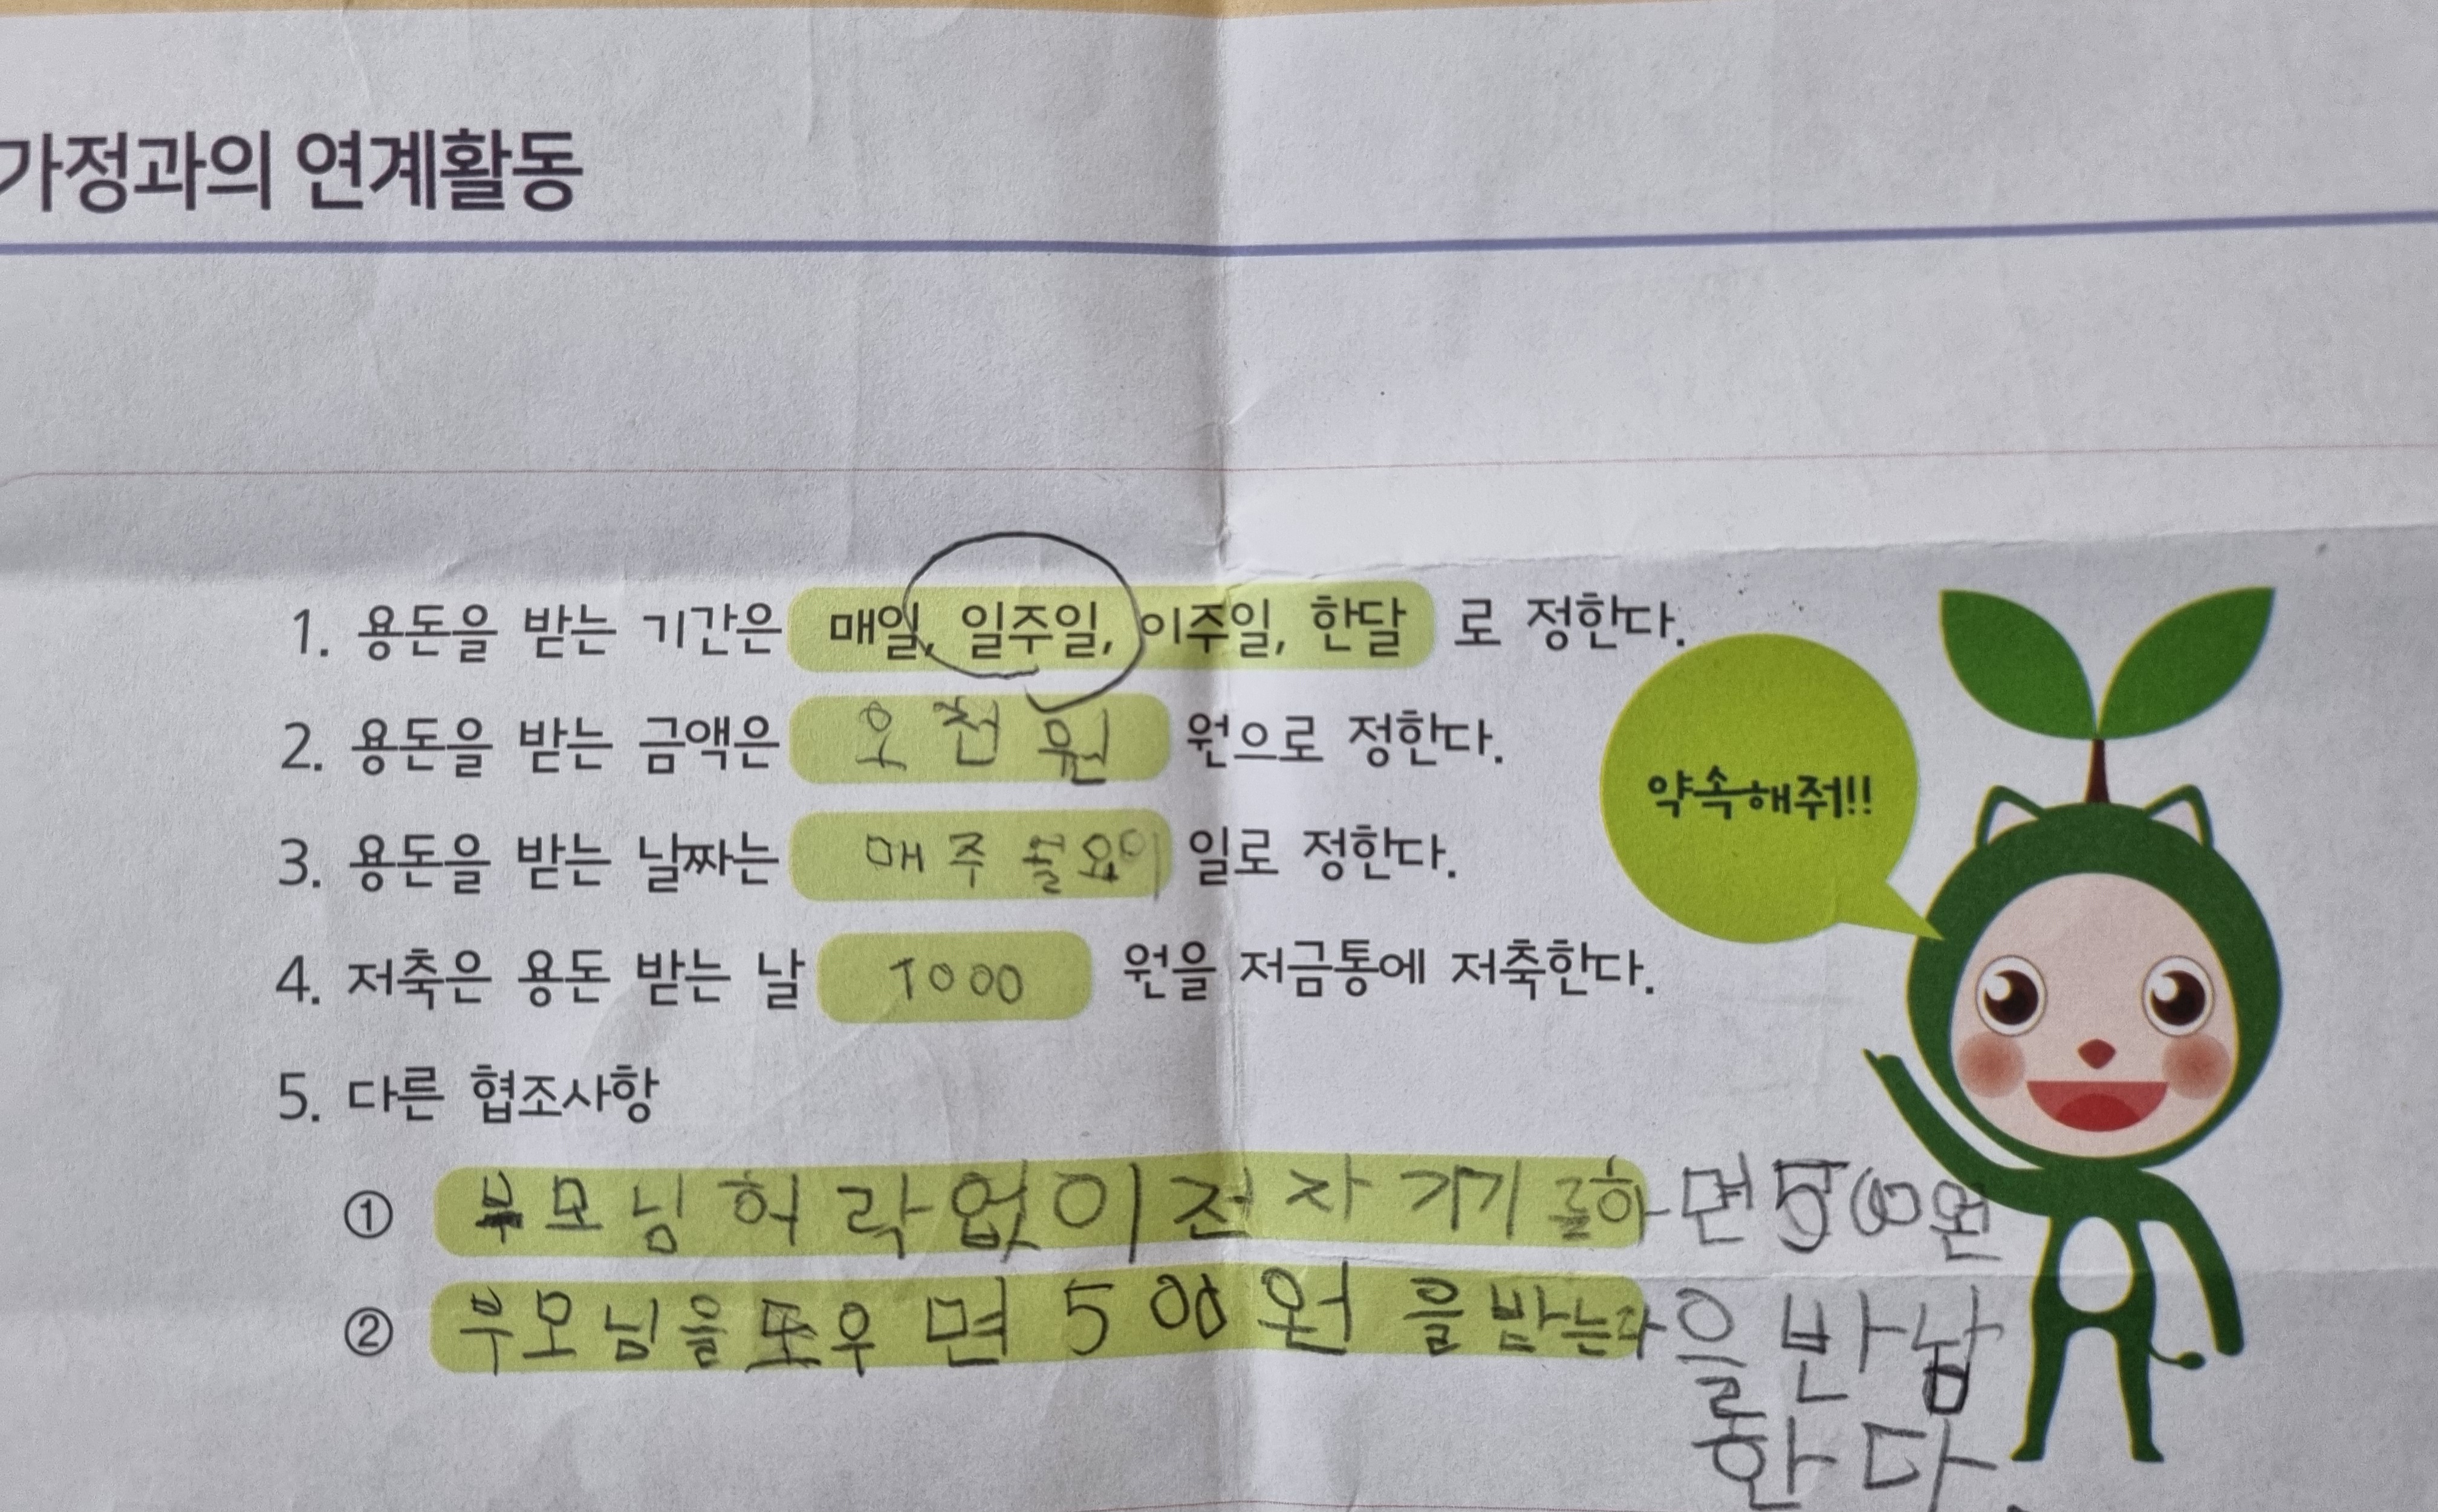 가정과의 연계활동
1. 용돈을 받는 기간은 매일, 일주일, 이주일, 한달 로 정한다.
2. 용돈을 받는 금액은 오천원 원으로 정한다.
3. 용돈을 받는 날짜는 매주 월요이 일로 정한다.
4. 저축은 용돈 받는 날 1000 원을 저금통에 저축한다.
5. 다른 협조사항
① 부모님 허락없이 전자기기를하면 500원
을 반납
한다.
② 부모님을 도우면 500원을 받는다
약속해줘!!